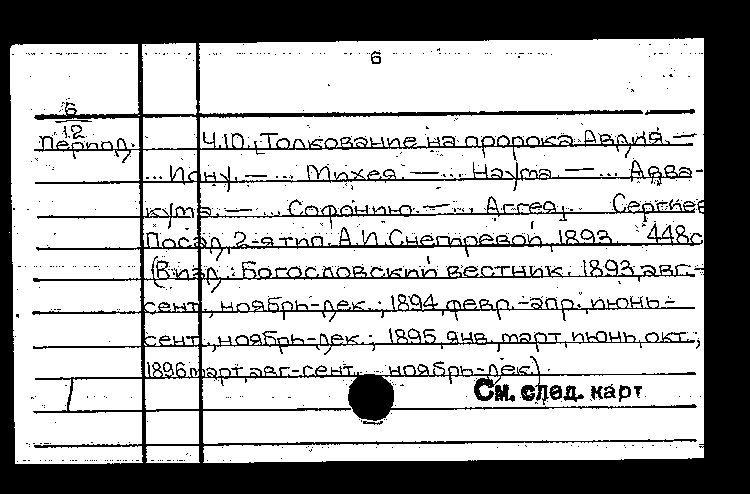 6
6
12
Период. Ч.10. [Толкование на пророка Авдия. —
... Иону. — ... Михея. — ... Наума. — ... Авва-
кума. — ... Софонию. — ... Аггея]. Сергиев
Посад, 2-я тип. А.И.Снегиревой, 1893. 448с
(В изд.: Богословский вестник. 1893, авг.-
сент., ноябрь-дек.; 1894, февр.-апр., июнь-
сент., ноябрь-дек.; 1895, янв., март, июнь, окт.;
1896 март, авг.-сент., ноябрь-дек.)
См. след. карт